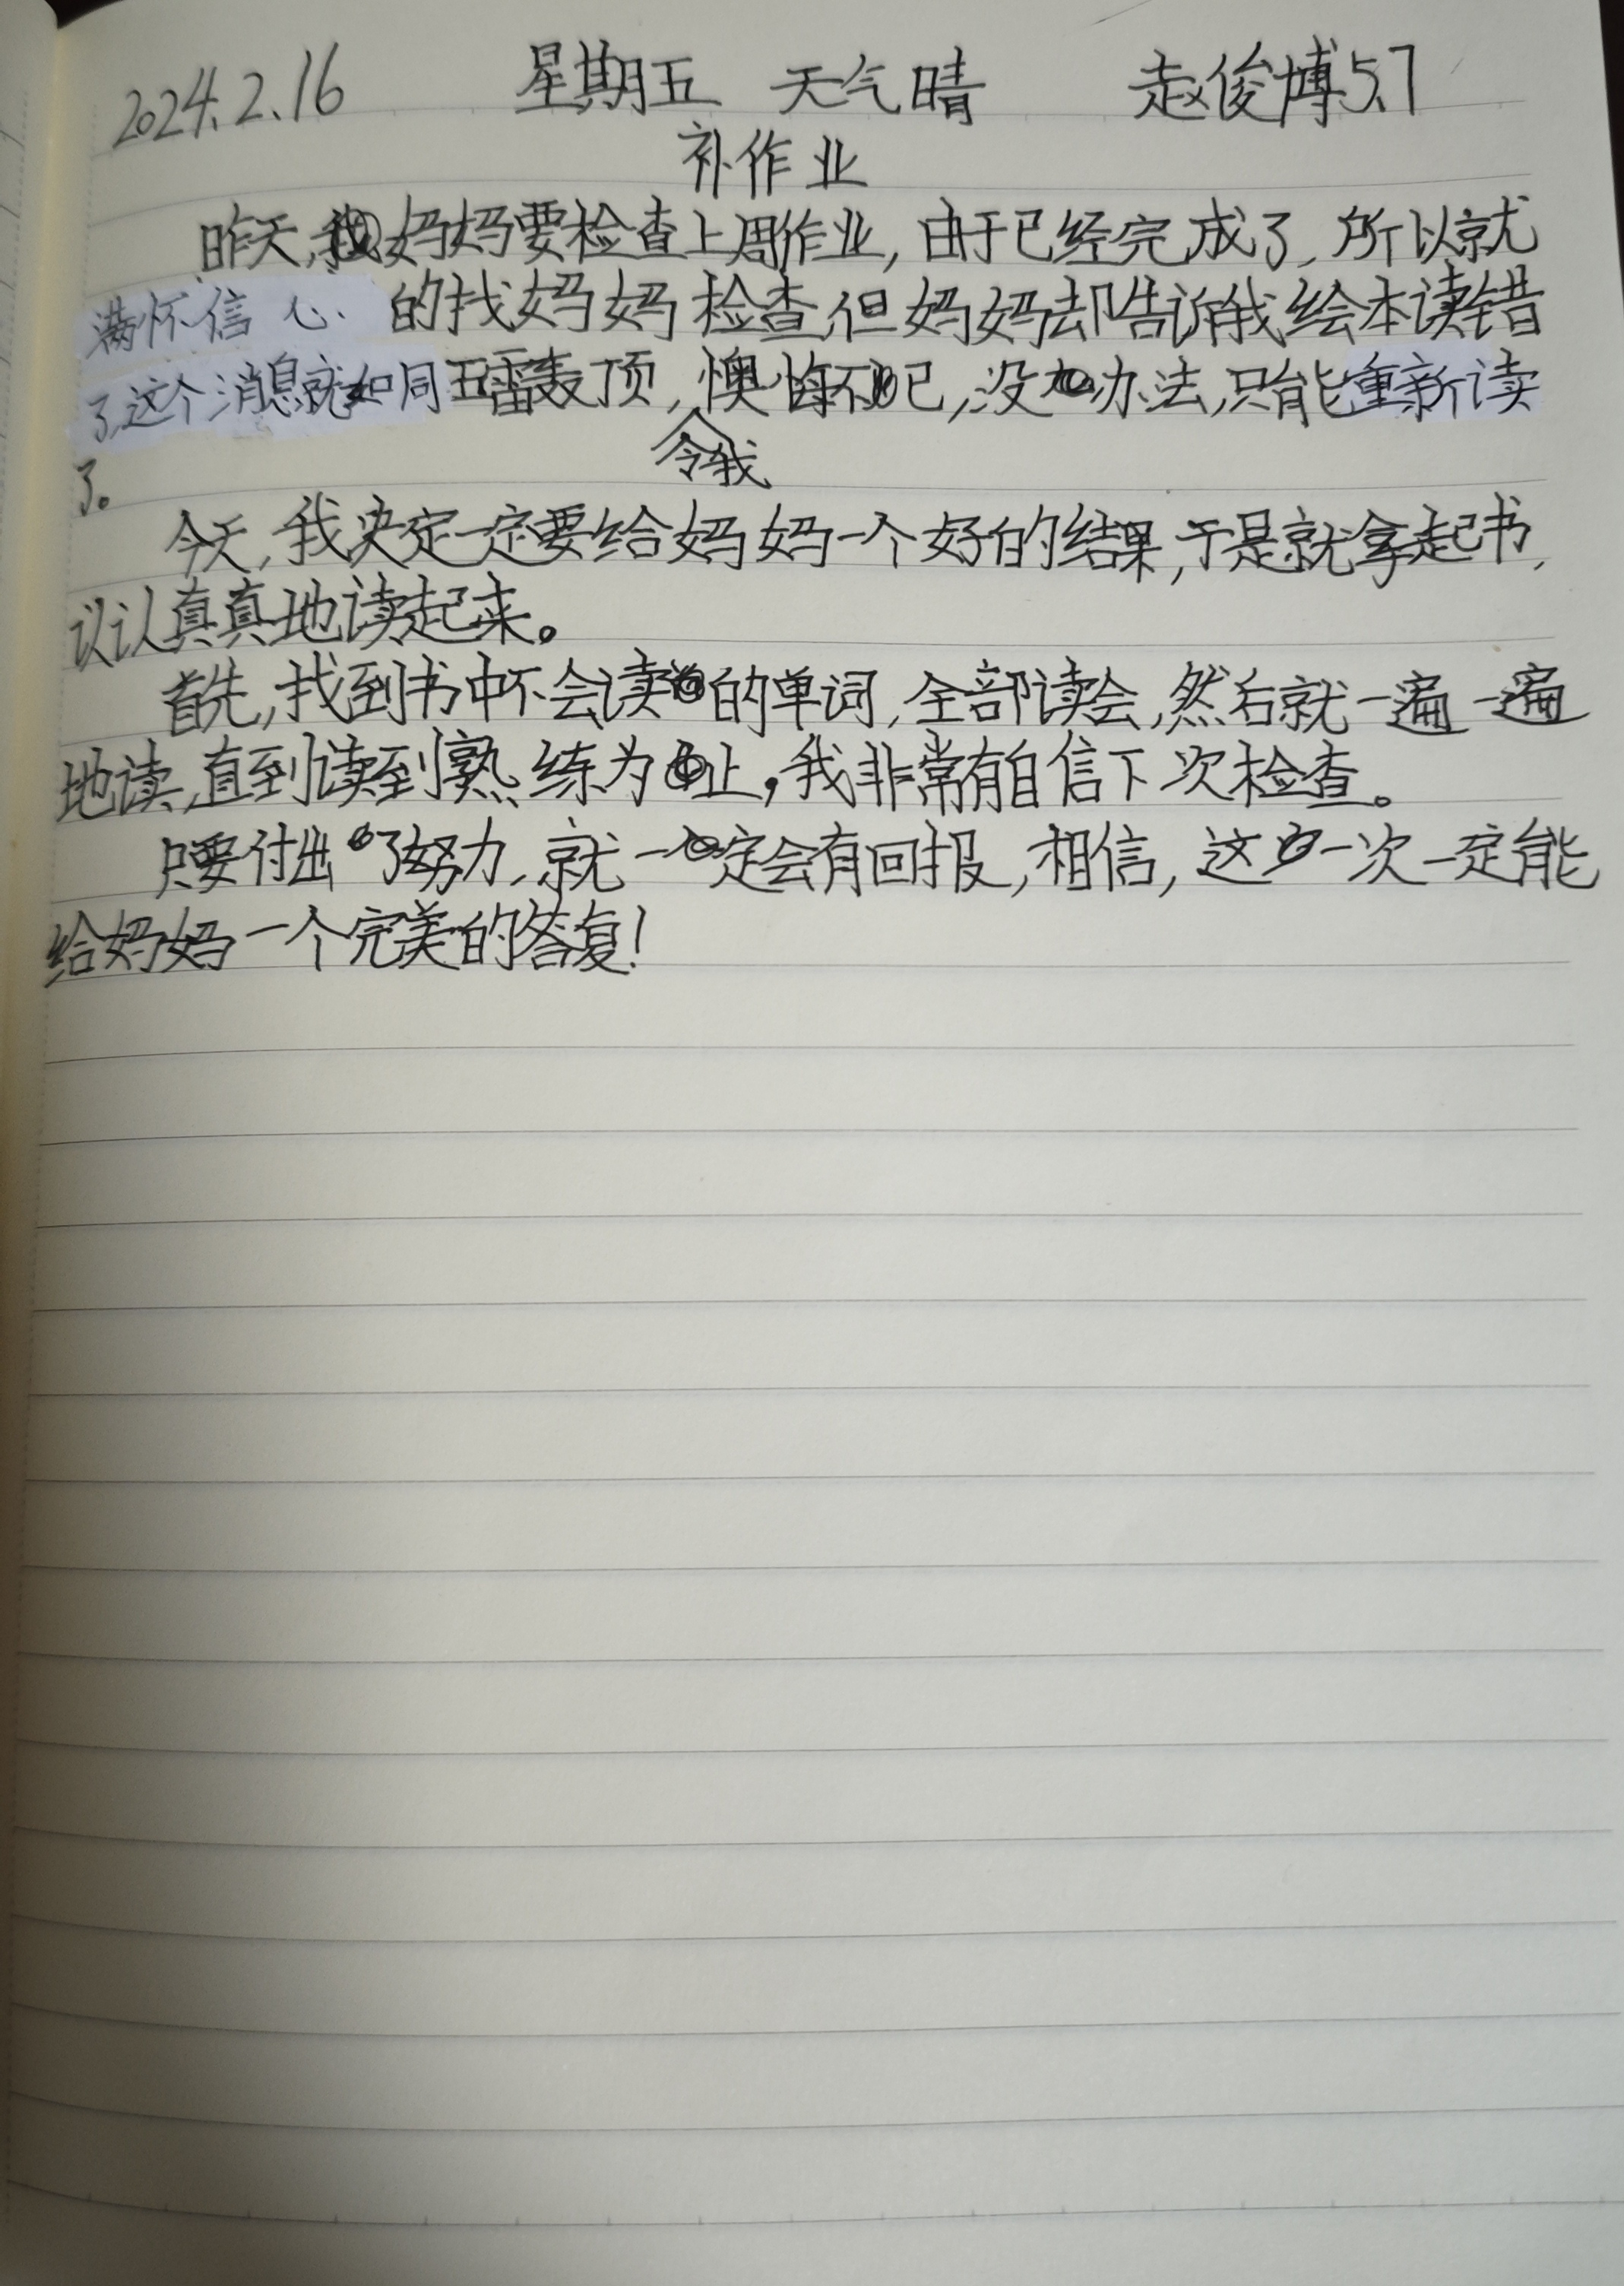 2024.2.16 星期五 天气晴 赵俊博5.7
补作业
昨天,我妈妈要检查上周作业,由于已经完成了,所以就
满怀信心的找妈妈检查,但妈妈却告诉我绘本读错
了,这个消息就如同五雷轰顶,令我懊悔不已,没办法,只能重新读
了。
今天,我决定一定要给妈妈一个好的结果,于是就拿起书,
认认真真地读起来。
首先,找到书中不会读的单词,全部读会,然后就一遍一遍
地读,直到读到熟练为止,我非常有自信下次检查。
只要付出了努力,就一定会有回报,相信,这一次一定能
给妈妈一个完美的答复!